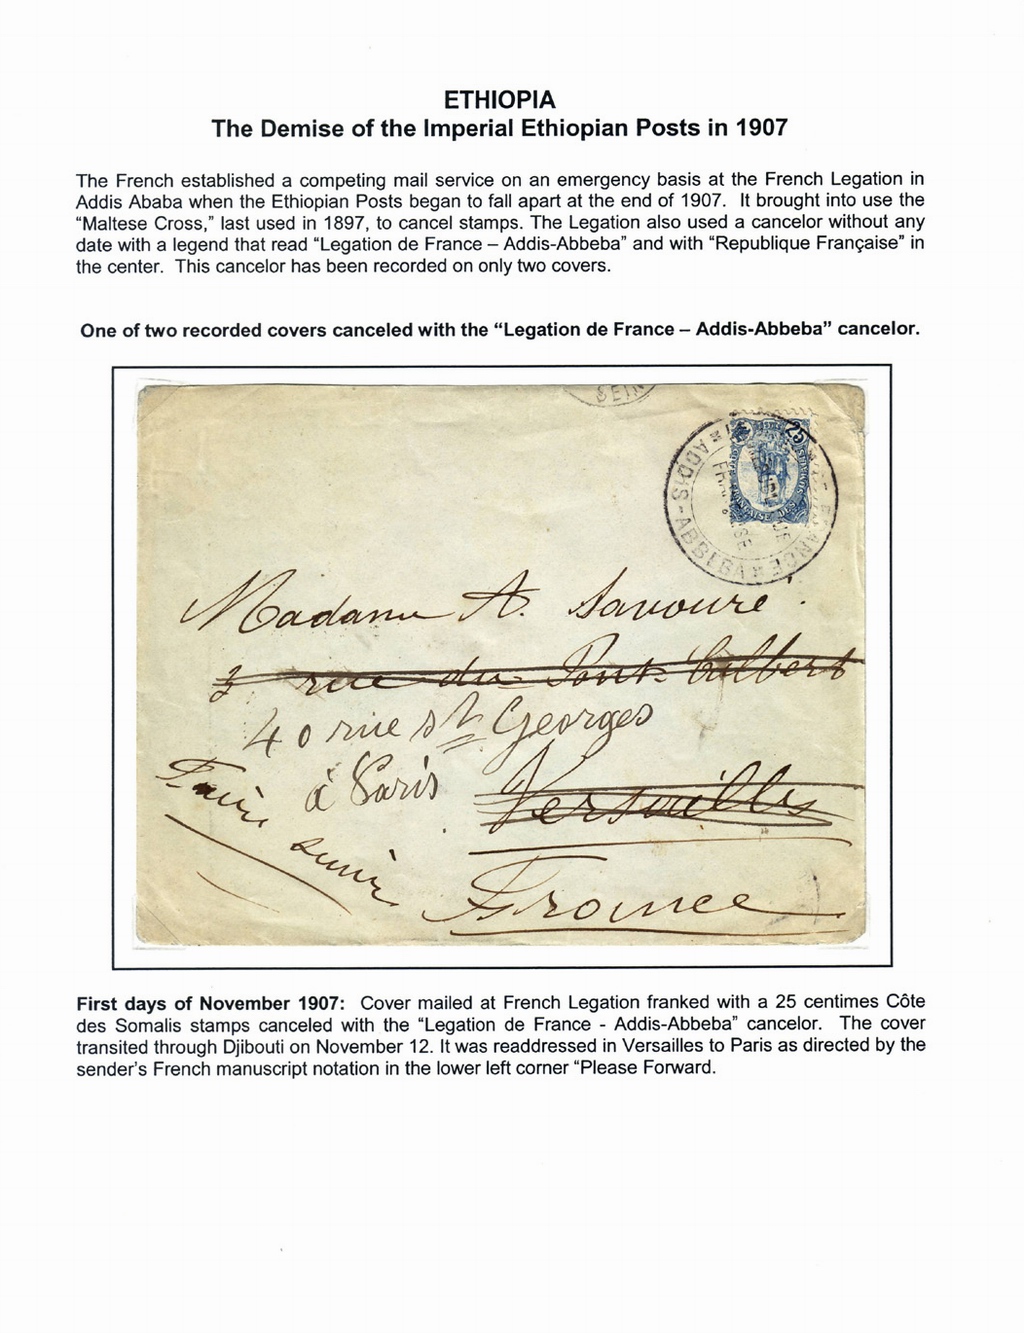 ETHIOPIA
The Demise of the Imperial Ethiopian Posts in 1907
The French established a competing mail service on an emergency basis at the French Legation in
Addis Ababa when the Ethiopian Posts began to fall apart at the end of 1907. It brought into use the
"Maltese Cross," last used in 1897, to cancel stamps. The Legation also used a cancelor without any
date with a legend that read "Legation de France – Addis-Abbeba" and with "Republique Française" in
the center. This cancelor has been recorded on only two covers.
One of two recorded covers canceled with the "Legation de France – Addis-Abbeba" cancelor.
25
ADDIS-ABBEBA
Madame A. Savouré.
3 rue du Pont Colbert
40 rue St Georges
à Paris
Versailles
Faire suivre
France
First days of November 1907: Cover mailed at French Legation franked with a 25 centimes Côte
des Somalis stamps canceled with the "Legation de France - Addis-Abbeba" cancelor. The cover
transited through Djibouti on November 12. It was readdressed in Versailles to Paris as directed by the
sender's French manuscript notation in the lower left corner "Please Forward.